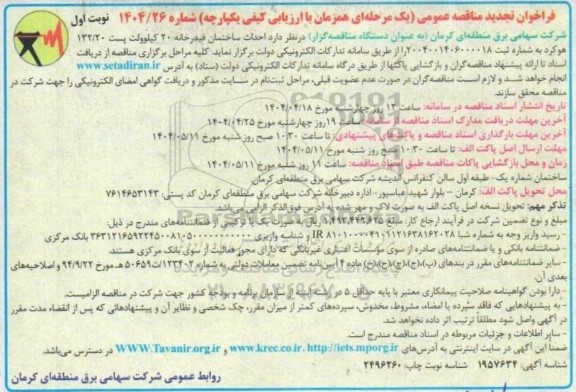 فراخوان تجدید مناقصه عمومی (یک مرحله‌ای همزمان با ارزیابی کیفی یکپارچه) شماره ۱۴۰۴/۲۶
نوبت اول
شرکت سهامی برق منطقه‌ای کرمان (به عنوان دستگاه مناقصه‌گزار) در نظر دارد احداث ساختمان فیدرخانه ۲۰ کیلوولت پست ۱۳۲/۲۰
هوکرد به شماره ثبت ۲۰۰۴۰۰۱۴۰۶۰۰۰۰۱۸ را از طریق سامانه تدارکات الکترونیکی دولت برگزار نماید. کلیه مراحل برگزاری مناقصه از دریافت
اسناد تا ارائه پیشنهاد مناقصه‌گران و بازگشایی پاکتها از طریق درگاه سامانه تدارکات الکترونیکی دولت (ستاد) به آدرس www.setadiran.ir
انجام خواهد شد و لازم است مناقصه‌گران در صورت عدم عضویت قبلی، مراحل ثبت‌نام در سایت مذکور و دریافت گواهی امضای الکترونیکی را جهت شرکت در
مناقصه محقق سازند.
تاریخ انتشار اسناد مناقصه در سامانه: ساعت ۱۳ روز چهارشنبه مورخ ۱۴۰۴/۰۴/۱۸
آخرین مهلت دریافت مدارک اسناد مناقصه از سامانه: ساعت ۱۹ روز چهارشنبه مورخ ۱۴۰۴/۰۴/۲۵
آخرین مهلت بارگذاری اسناد مناقصه و پاکت‌های پیشنهادی: تا ساعت ۱۰:۳۰ صبح روز شنبه مورخ ۱۴۰۴/۰۵/۱۱
مهلت ارسال اصل پاکت الف: تا ساعت ۱۰:۳۰ صبح روز شنبه مورخ ۱۴۰۴/۰۵/۱۱
زمان و محل بازگشایی پاکات مناقصه طبق اسناد مناقصه: ساعت ۱۱ روز شنبه مورخ ۱۴۰۴/۰۵/۱۱
ساختمان شماره یک- طبقه اول سالن کنفرانس اندیشه شرکت سهامی برق منطقه‌ای کرمان
محل تحویل پاکت الف: کرمان – بلوار شهید عباسپور – اداره دبیرخانه شرکت سهامی برق منطقه‌ای کرمان کد پستی: ۷۶۱۴۶۵۳۱۴۳
تذکر مهم: تحویل نسخه اصل پاکت الف به صورت لاک و مهر شده و به آدرس فوق‌الذکر الزامی می‌باشد.
مبلغ و نوع تضمین شرکت در فرآیند ارجاع کار: ریال به صورت یک یا ترکیبی از ضمانتنامه‌های مندرج در ذیل:
- رسید واریز وجه به شماره شبا IR و شناسه واریز بانک مرکزی
- ضمانتنامه بانکی و یا ضمانتنامه‌های صادره از سوی مؤسسات اعتباری غیربانکی که دارای مجوز فعالیت از سوی بانک مرکزی هستند
- سایر ضمانتنامه‌های مقرر در بندهای ماده ۴ آیین‌نامه تضمین معاملات دولتی به شماره ۱۲۳۴۰۲/ت۵۰۶۵۹هـ مورخ ۹۴/۹/۲۲ و اصلاحیه‌های
بعدی آن.
- دارا بودن گواهینامه صلاحیت پیمانکاری معتبر با پایه حداقل ۵ در رشته سازمان برنامه و بودجه کشور جهت شرکت در مناقصه الزامیست.
- به پیشنهادهایی که فاقد سپرده یا امضاء، مشروط، مخدوش، سپرده‌های کمتر از میزان مقرر، چک شخصی و نظایر آن و پیشنهادهائی که پس از انقضاء مدت مقرر
در آگهی واصل شود مطلقاً ترتیب اثر داده نخواهد شد.
- سایر اطلاعات و جزئیات مربوطه در اسناد مناقصه مندرج است.
ضمناً این آگهی در سایت اینترنتی به آدرس‌های www.krec.co.ir، http://iets.mporg.ir و WWW.Tavanir.org.ir در دسترس می‌باشد.
شناسه آگهی: ۱۹۵۷۶۳۴ شناسه نوبت چاپ: ۲۴۹۶۲۶۰
روابط عمومی شرکت سهامی برق منطقه‌ای کرمان